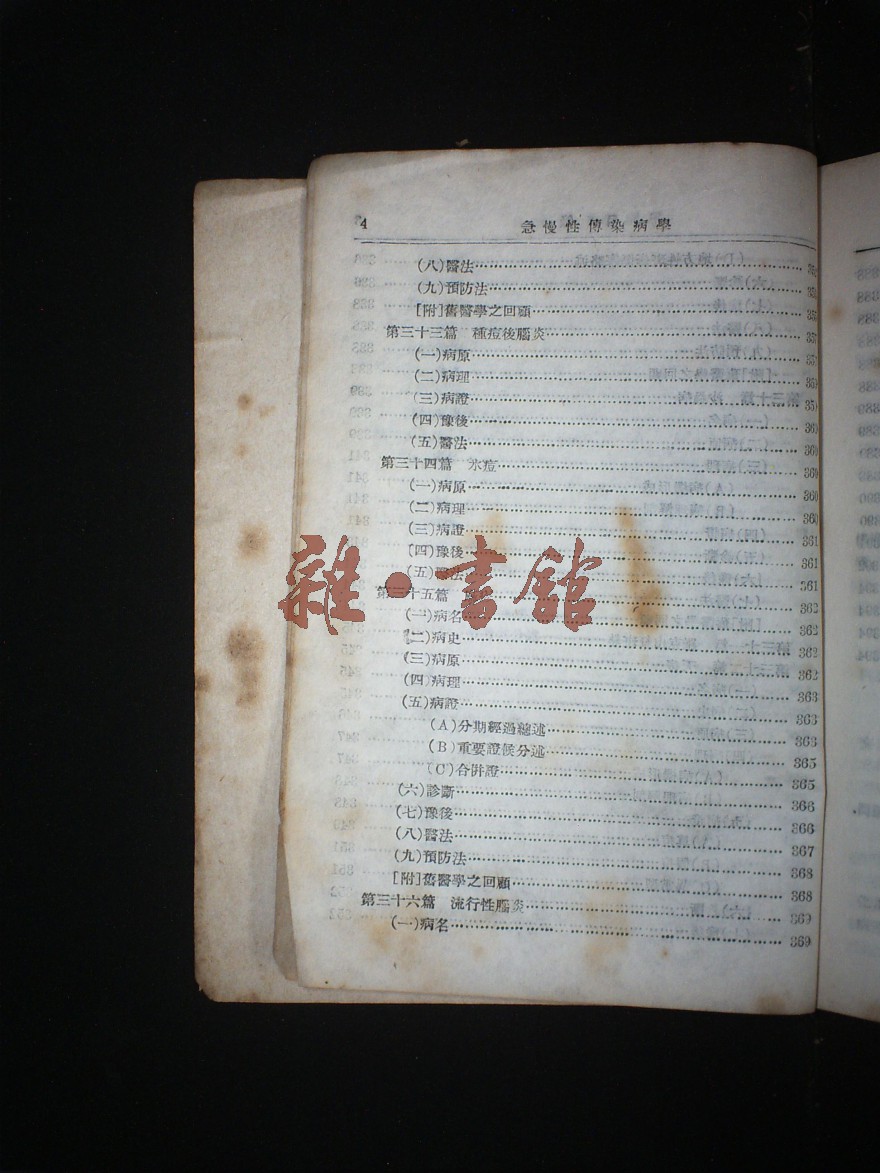 4 急慢性傳染病學
(八)醫法
(九)預防法
[附]舊醫學之回顧
第三十三篇 種痘後腦炎
(一)病原
(二)病理
(三)病證
(四)豫後 360
(五)醫法 360
第三十四篇 水痘 360
(一)病原 360
(二)病理 360
(三)病證 361
(四)豫後 361
(五)醫法 361
第三十五篇 362
(一)病名 362
(二)病史 362
(三)病原 362
(四)病理 363
(五)病證 363
(A)分期經過總述 363
(B)重要證候分述 365
(C)合併證 365
(六)診斷 366
(七)豫後 366
(八)醫法 367
(九)預防法 368
[附]舊醫學之回顧 368
第三十六篇 流行性腦炎 369
(一)病名 369
雜·書館